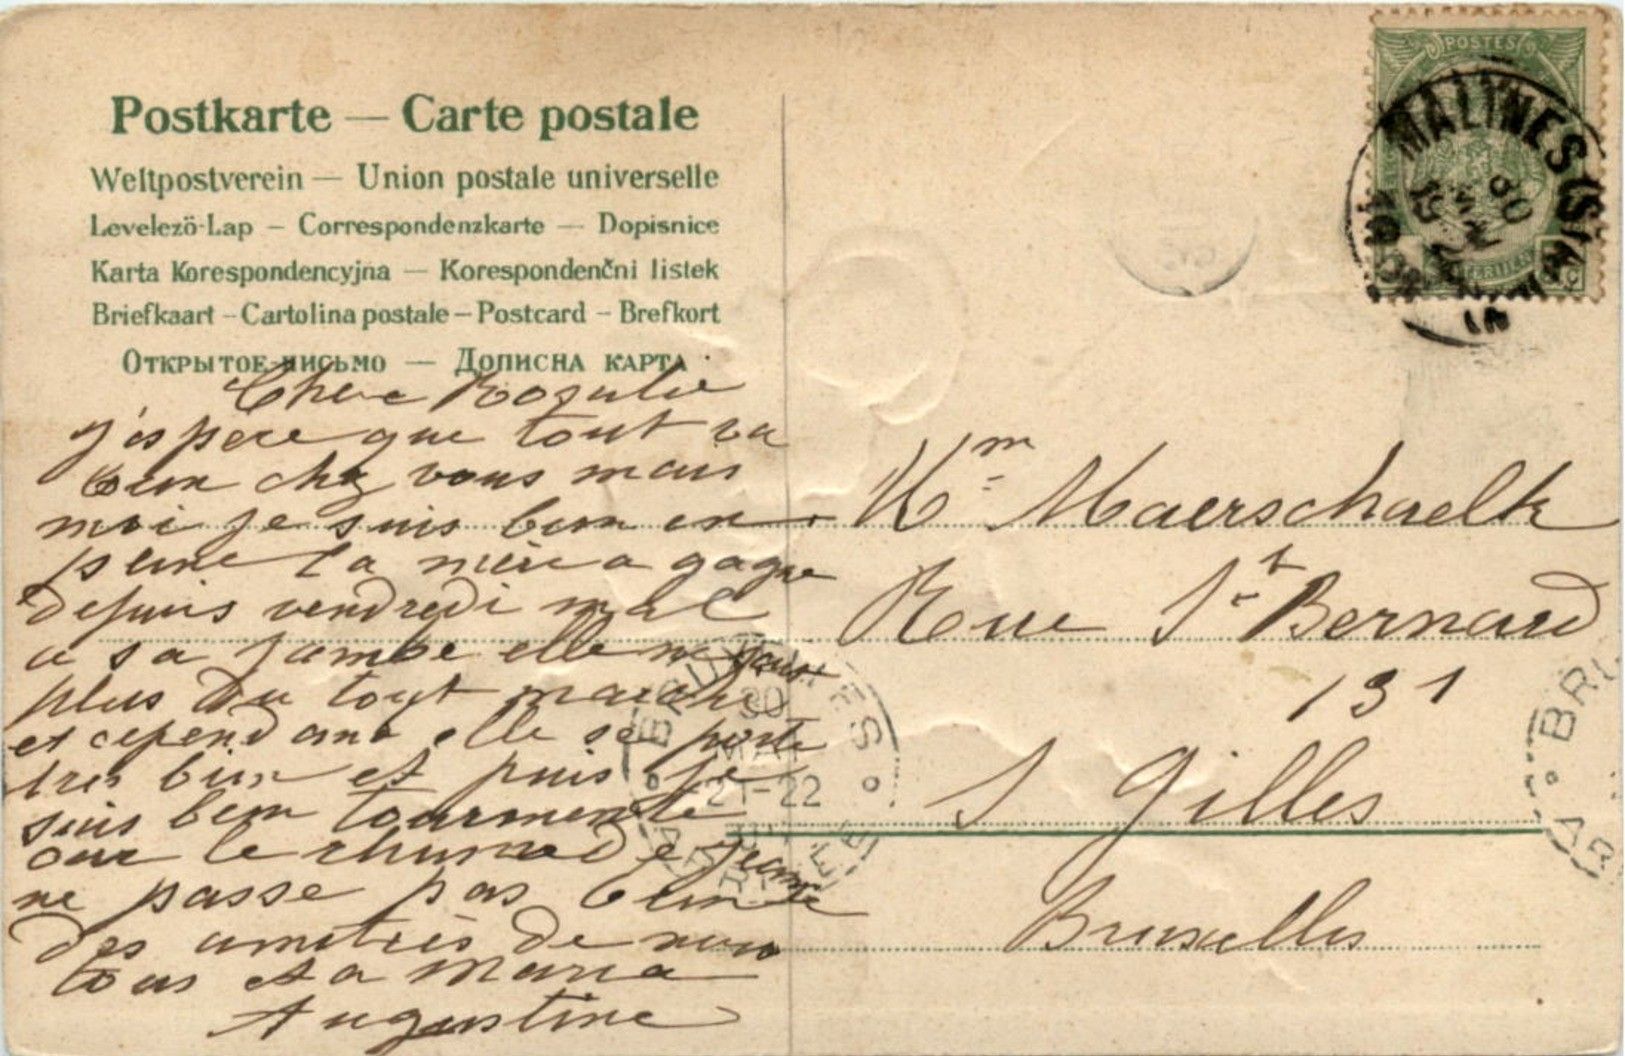 Postkarte — Carte postale
Weltpostverein — Union postale universelle
Levelező-Lap — Correspondenzkarte — Dopisnice
Karta Korespondencyjna — Korespondenčni listek
Briefkaart — Cartolina postale — Postcard — Brefkort
Открытое письмо — Дописна карта
Chere Rosalie
j'espere que tout va
bien chez vous mais
moi je suis bien en
peine la mère a gagne
depuis vendredi mal
a sa jambe elle ne
plus du tout marche
et cependant elle se porte
tres bien et puis je
suis bien tourmente
car le rhume de Jeanne
ne passe pas bien
des amities de nous
tous et a Maria
Augustine
Mm Maerschaelk
Rue St Bernard
131
S Gilles
Bruxelles
POSTES
MALINES (STATION)
30
BRUXELLES
30
21-22
ARRIVEE
BRU
AR